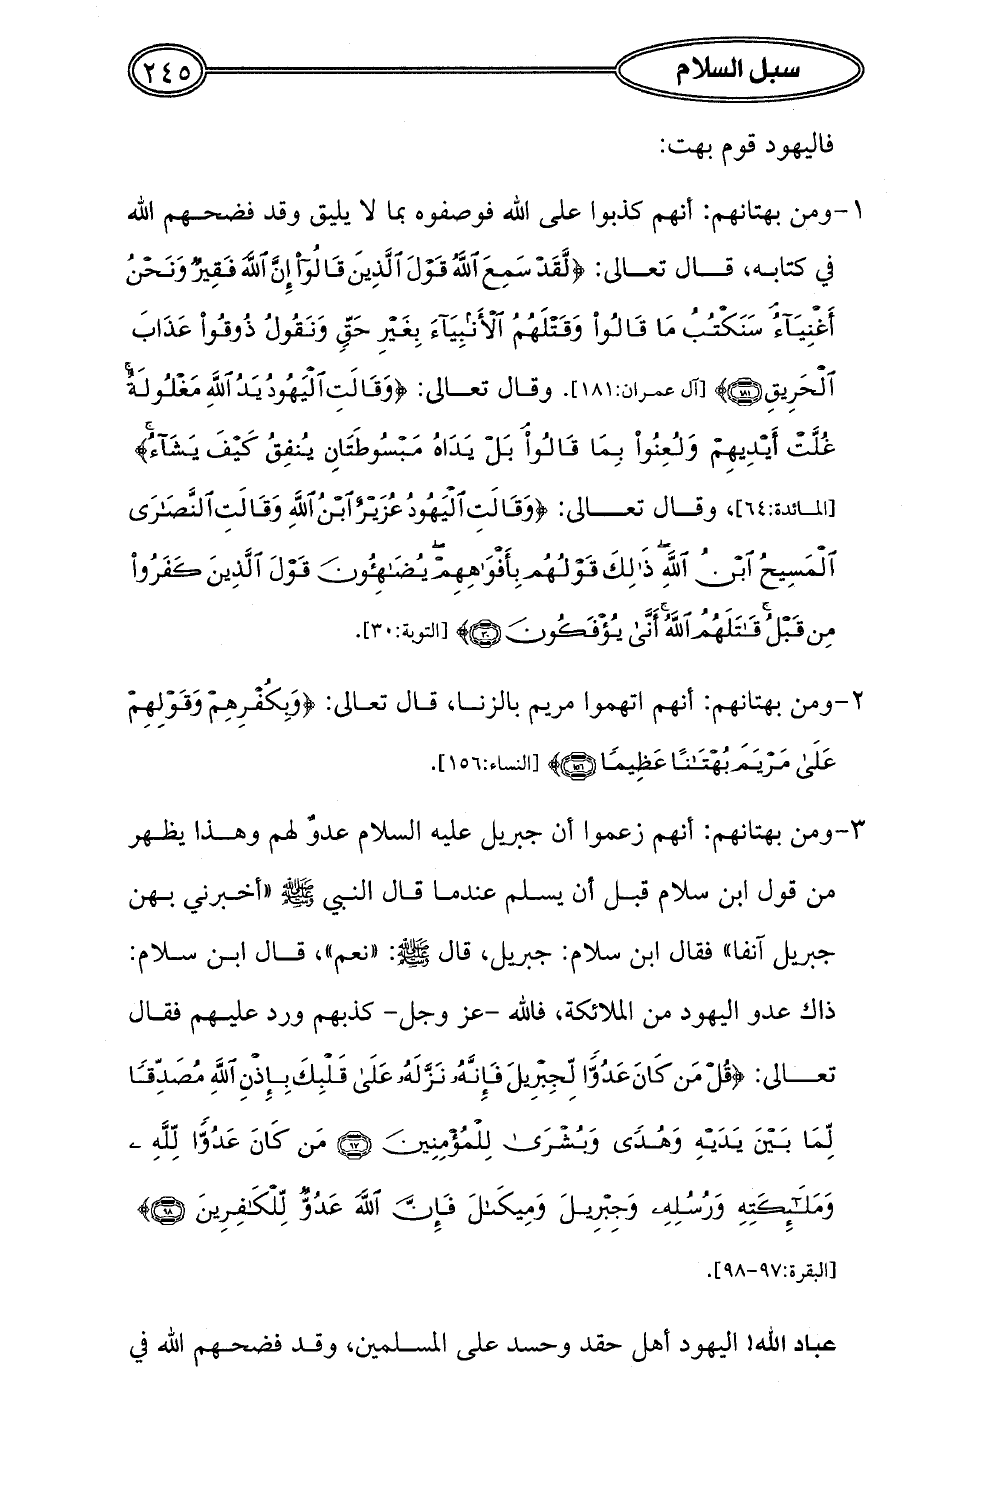 سبل السلام
٢٤٥
فاليهود قوم بهت:
١-ومن بهتانهم: أنهم كذبوا على الله فوصفوه بما لا يليق وقد فضحهم الله
في كتابه، قال تعالى: ﴿لَّقَدْ سَمِعَ ٱللَّهُ قَوْلَ ٱلَّذِينَ قَالُوٓا۟ إِنَّ ٱللَّهَ فَقِيرٌ وَنَحْنُ
أَغْنِيَآءُ سَنَكْتُبُ مَا قَالُوا۟ وَقَتْلَهُمُ ٱلْأَنۢبِيَآءَ بِغَيْرِ حَقٍّ وَنَقُولُ ذُوقُوا۟ عَذَابَ
ٱلْحَرِيقِ ١٨١﴾ [آل عمران:١٨١]. وقال تعالى: ﴿وَقَالَتِ ٱلْيَهُودُ يَدُ ٱللَّهِ مَغْلُولَةٌ ۚ
غُلَّتْ أَيْدِيهِمْ وَلُعِنُوا۟ بِمَا قَالُوا۟ ۘ بَلْ يَدَاهُ مَبْسُوطَتَانِ يُنفِقُ كَيْفَ يَشَآءُ ۚ﴾
[المائدة:٦٤]، وقال تعالى: ﴿وَقَالَتِ ٱلْيَهُودُ عُزَيْرٌ ٱبْنُ ٱللَّهِ وَقَالَتِ ٱلنَّصَٰرَى
ٱلْمَسِيحُ ٱبْنُ ٱللَّهِ ۖ ذَٰلِكَ قَوْلُهُم بِأَفْوَٰهِهِمْ ۖ يُضَٰهِـُٔونَ قَوْلَ ٱلَّذِينَ كَفَرُوا۟
مِن قَبْلُ ۚ قَٰتَلَهُمُ ٱللَّهُ ۚ أَنَّىٰ يُؤْفَكُونَ ٣٠﴾ [التوبة:٣٠].
٢-ومن بهتانهم: أنهم اتهموا مريم بالزنا، قال تعالى: ﴿وَبِكُفْرِهِمْ وَقَوْلِهِمْ
عَلَىٰ مَرْيَمَ بُهْتَٰنًا عَظِيمًا ١٥٦﴾ [النساء:١٥٦].
٣-ومن بهتانهم: أنهم زعموا أن جبريل عليه السلام عدوٌ لهم وهذا يظهر
من قول ابن سلام قبل أن يسلم عندما قال النبي ﷺ «أخبرني بهن
جبريل آنفا» فقال ابن سلام: جبريل، قال ﷺ: «نعم»، قال ابن سلام:
ذاك عدو اليهود من الملائكة، فالله -عز وجل- كذبهم ورد عليهم فقال
تعالى: ﴿قُلْ مَن كَانَ عَدُوًّا لِّجِبْرِيلَ فَإِنَّهُۥ نَزَّلَهُۥ عَلَىٰ قَلْبِكَ بِإِذْنِ ٱللَّهِ مُصَدِّقًا
لِّمَا بَيْنَ يَدَيْهِ وَهُدًى وَبُشْرَىٰ لِلْمُؤْمِنِينَ ٩٧ مَن كَانَ عَدُوًّا لِّلَّهِ
وَمَلَٰٓئِكَتِهِۦ وَرُسُلِهِۦ وَجِبْرِيلَ وَمِيكَىٰلَ فَإِنَّ ٱللَّهَ عَدُوٌّ لِّلْكَٰفِرِينَ ٩٨﴾
[البقرة:٩٧-٩٨].
عباد الله! اليهود أهل حقد وحسد على المسلمين، وقد فضحهم الله في